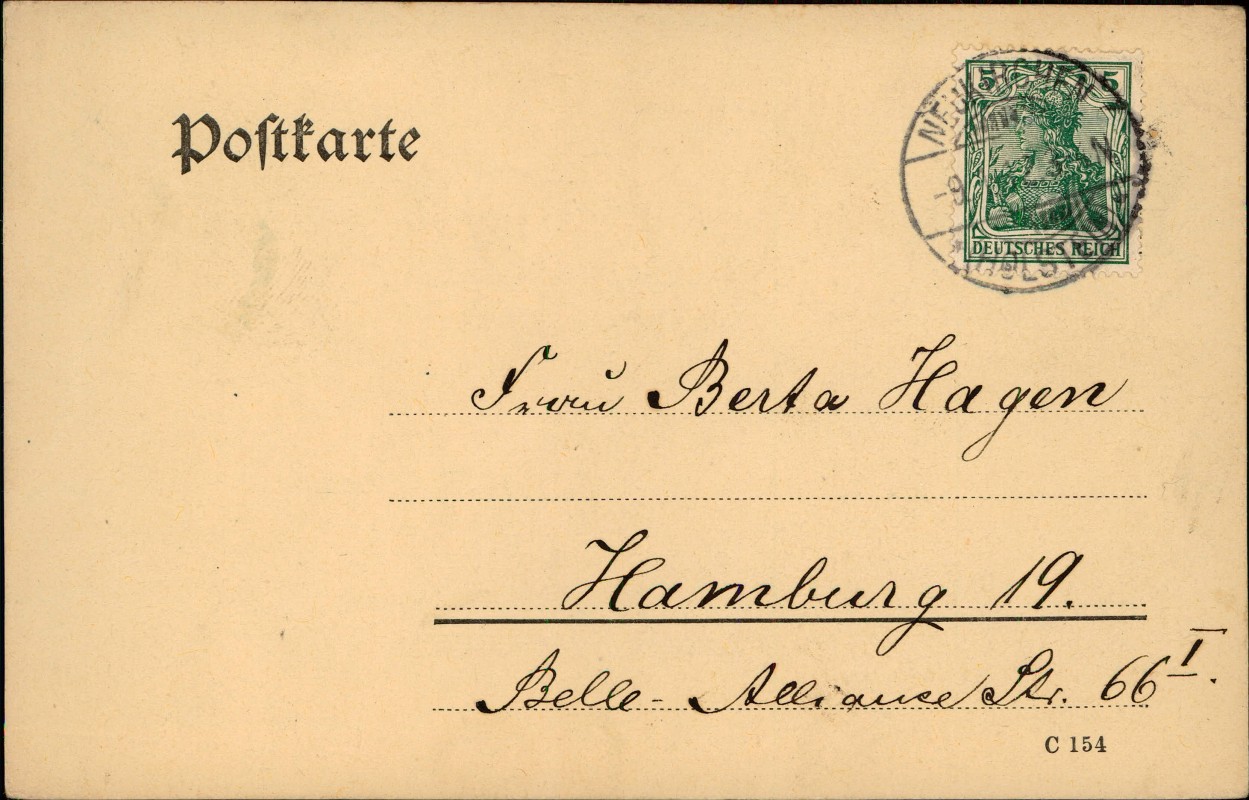 Postkarte
5 5
NEUKIRCHEN
DEUTSCHES REICH
Frau Berta Hagen
Hamburg 19.
Belle-Alliance Str. 66 I.
C 154